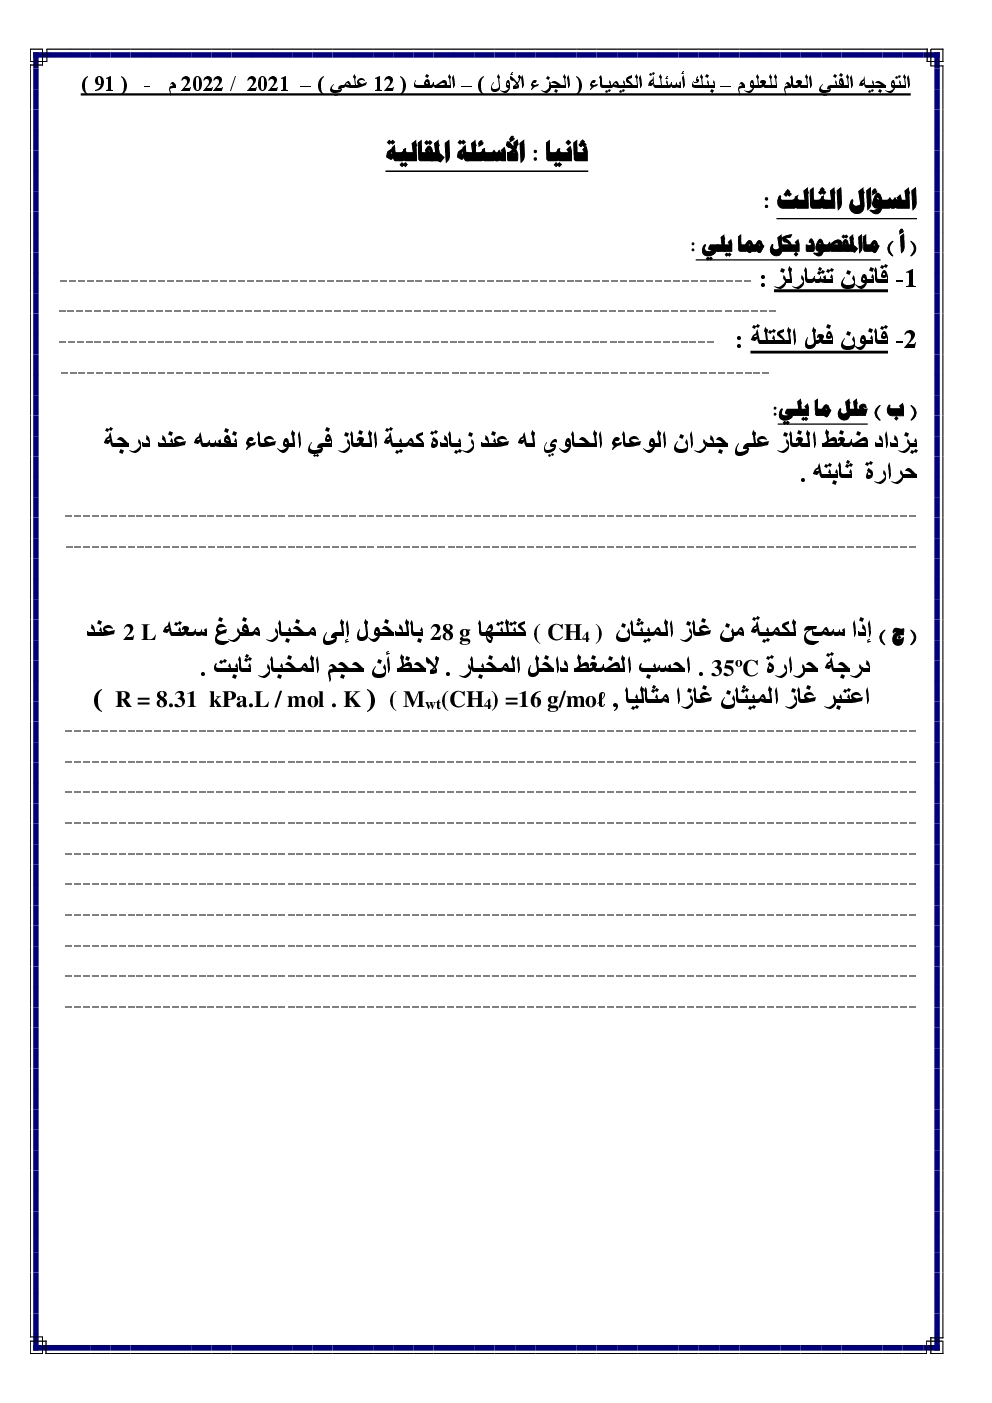 التوجيه الفني العام للعلوم – بنك أسئلة الكيمياء ( الجزء الأول ) – الصف ( 12 علمي ) – 2021 / 2022 م - ( 91 )
ثانيا : الأسئلة المقالية
السؤال الثالث :
( أ ) ماالمقصود بكل مما يلي :
1- قانون تشارلز :
2- قانون فعل الكتلة :
( ب ) علل ما يلي:
يزداد ضغط الغاز على جدران الوعاء الحاوي له عند زيادة كمية الغاز في الوعاء نفسه عند درجة
حرارة ثابته .
( ج ) إذا سمح لكمية من غاز الميثان ( CH4 ) كتلتها 28 g بالدخول إلى مخبار مفرغ سعته 2 L عند
درجة حرارة 35ºC . احسب الضغط داخل المخبار . لاحظ أن حجم المخبار ثابت .
اعتبر غاز الميثان غازا مثاليا , ( Mwt(CH4) =16 g/moℓ ) ( R = 8.31 kPa.L / mol . K )